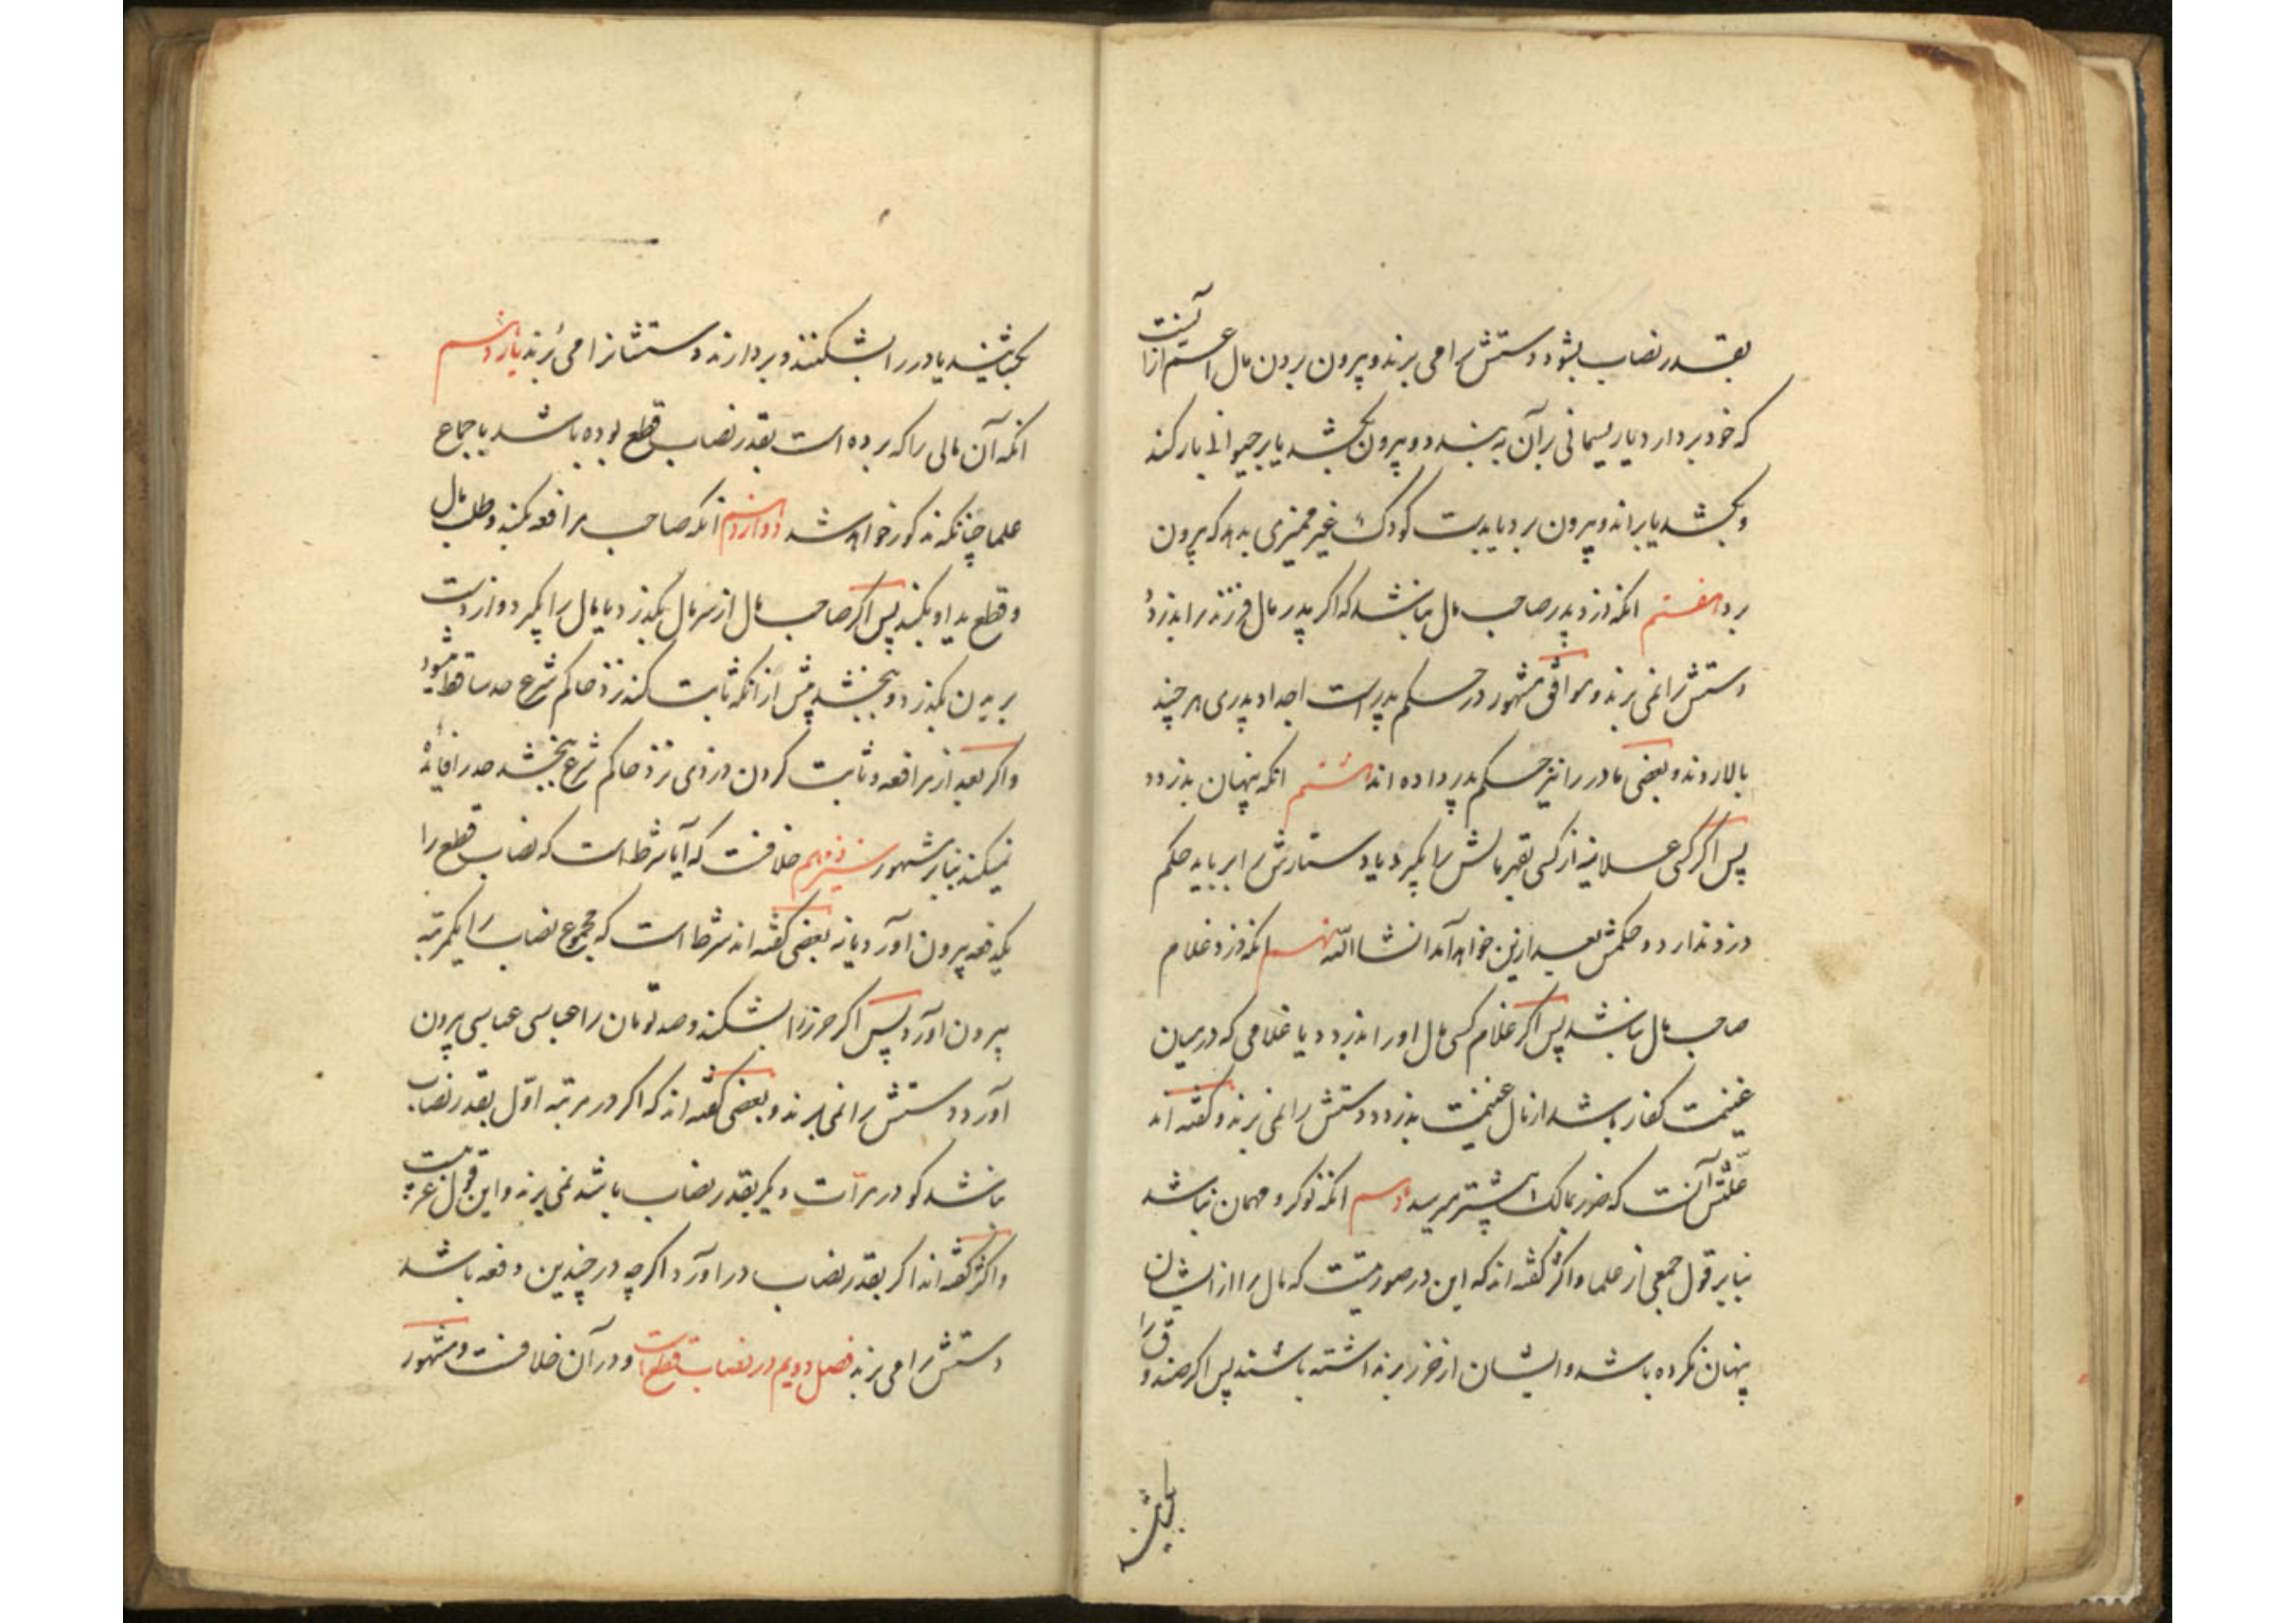 بقدر نصاب بشود دستش را می برند و بیرون بردن مال اعم از آنست
که خود بردارد یا ریسمانی بر آن به بندد و بیرون بکشد یا بر حیوانی بار کند
و بکشد یا براند و بیرون برد یا بدست کودک غیر ممیزی بدهد که بیرون
برد هفتم انکه دزد پدر صاحب مال نباشد که اگر پدر مال فرزند را بدزدد
دستش را نمی برند و موافق مشهور در حکم پدر است اجداد پدری هر چند
بالا روند و بعضی مادر را نیز حکم پدر داده اند هشتم انکه پنهان بدزدد
پس اگر کسی علانیه از کسی بقهر مالش را بگیرد یا دستارش را برباید حکم
دزد ندارد و حکمش بعد ازین خواهد آمد انشا الله نهم انکه دزد غلام
صاحب مال نباشد پس اگر غلام کسی مال او را بدزدد یا غلامی که در میان
غنیمت کفار باشد از مال غنیمت بدزدد دستش را نمی برند و گفته اند
علتش آنست که ضرر بمالک بیشتر میرسد دهم انکه نوکر و مهمان نباشد
بنابر قول جمعی از علما و اکثر گفته اند که این در صورتیست که مال را از ایشان
پنهان نکرده باشد و ایشان از حرز برنداشته باشند پس اگر صندوق را
بجنبانند یا در را بشکنند و بردارند دستشانرا می بُرند یازدهم
انکه آن مالی را که برده است بقدر نصاب قطع بوده باشد باجماع
علما چنانکه مذکور خواهد شد دوازدهم انکه صاحب مرافعه بکند و طلب مال
و قطع ید او بکند پس اگر صاحب مال از سر مال بگذرد یا مال را بگیرد و از دست
بریدن بگذرد و ببخشد پیش از انکه ثابت کند نزد حاکم شرع حد ساقط میشود
و اگر بعد از مرافعه و ثابت کردن دزدی نزد حاکم شرع ببخشد حد را فایده
نمیکند بنابر مشهور سیزدهم خلافست که آیا شرط است که نصاب قطع را
یکدفعه بیرون آورد یا نه بعضی گفته اند شرط است که مجموع نصاب را یکمرتبه
بیرون آورد پس اگر حرز را بشکند و صد تومان را عباسی عباسی بیرون
آورد دستش را نمی برند و بعضی گفته اند که اگر در مرتبه اوّل بقدر نصاب
نباشد گو در مرات دیگر بقدر نصاب باشد نمی برند و این قول غریبیست
و اکثر گفته اند اگر بقدر نصاب در آورد اگر چه در چندین دفعه باشد
دستش را می برند فصل دویم در نصاب قطع است و در آن خلافست و مشهور